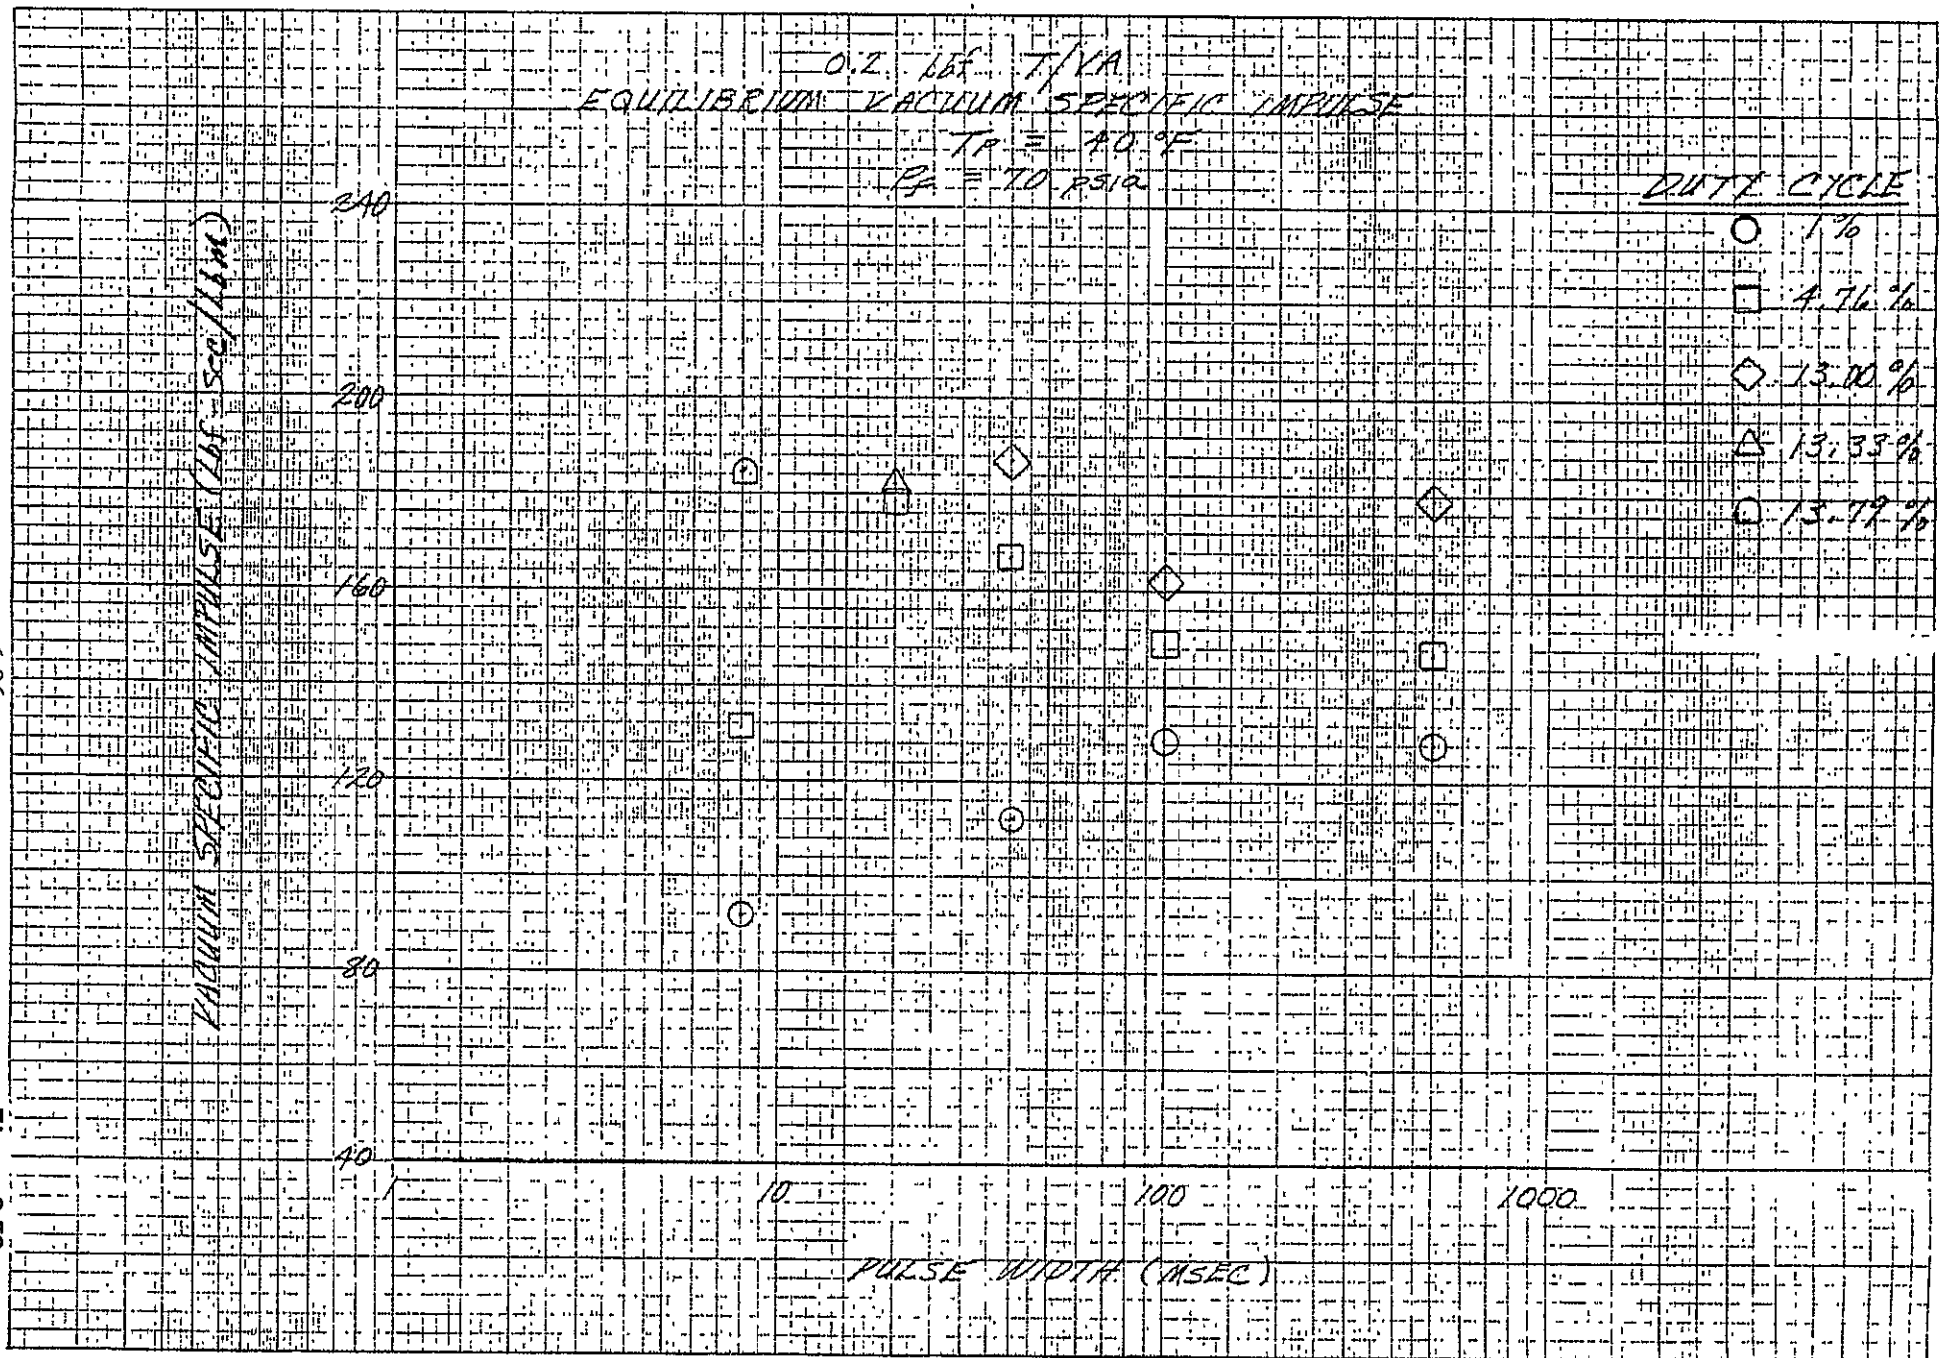 0.2 Lbf T/VA
EQUILIBRIUM VACUUM SPECIFIC IMPULSE
TP = 40 °F
PF = 70 psia
DUTY CYCLE
1%
4.76%
13.00%
13.33%
13.79%
VACUUM SPECIFIC IMPULSE (Lbf-sec/lbm)
240
200
160
120
80
40
1
10
100
1000
PULSE WIDTH (MSEC)